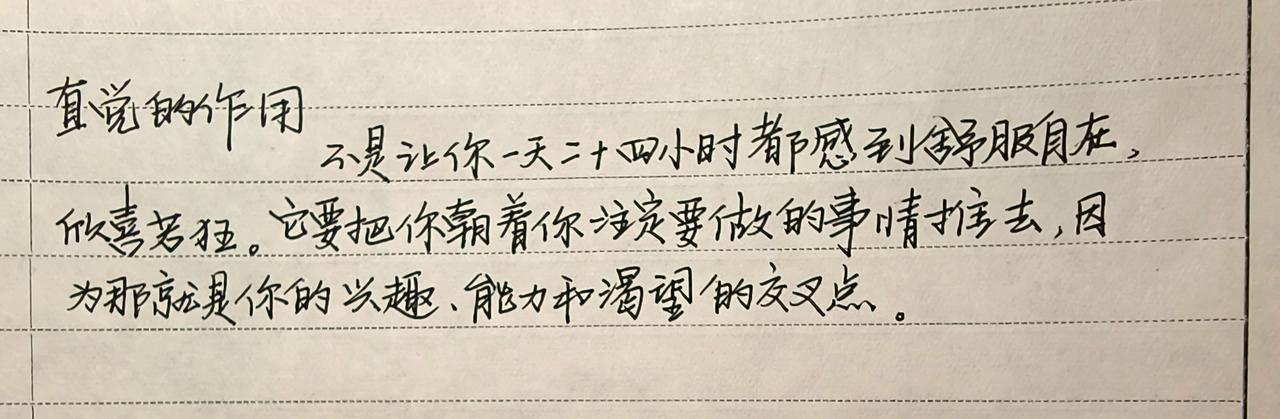 直觉的作用
不是让你一天二十四小时都感到舒服自在,
欣喜若狂。它要把你朝着你注定要做的事情推去,因
为那就是你的兴趣、能力和渴望的交叉点。